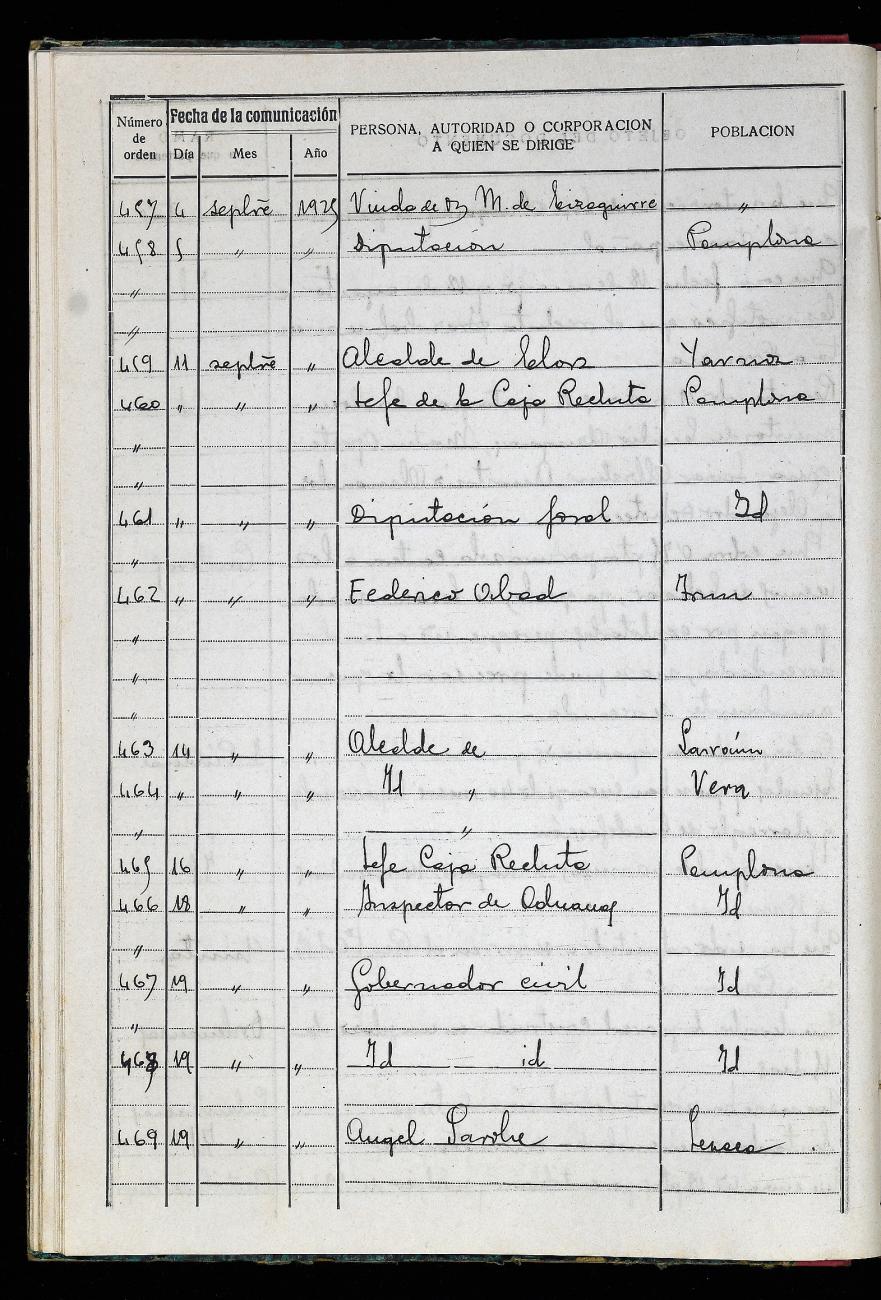 Número de orden Fecha de la comunicación PERSONA, AUTORIDAD O CORPORACION A QUIEN SE DIRIGE POBLACION
Día Mes Año
457 4 septbre 1925 Viuda de M. de Eizaguirre "
458 5 " " Diputación Pamplona
"
"
459 11 septbre " Alcalde de Elorz Yarnoz
460 " " " Jefe de la Caja Recluta Pamplona
"
"
461 " " " Diputación foral Id
"
462 " " " Federico Abad Irun
"
"
"
463 14 " " Alcalde de
464 " " " Id " Vera
" "
465 16 " " Jefe Caja Recluta Pamplona
466 18 " " Inspector de Aduanas Id
"
467 19 " " Gobernador civil Id
"
468 19 " " Id id Id
469 19 " " Angel Lesaca